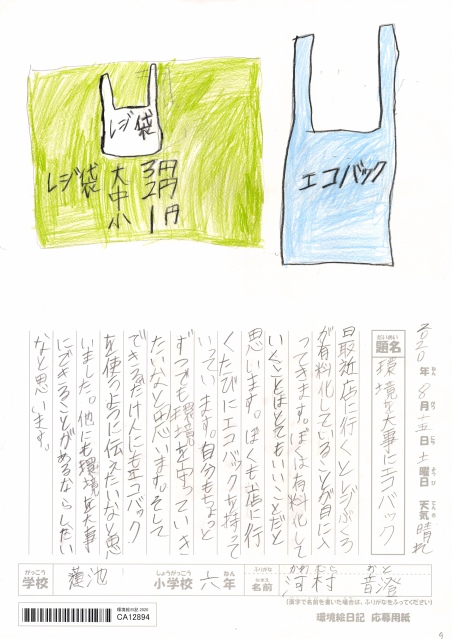 レジ袋
レジ袋 大 3円
中 2円
小 1円
エコバック
2020年 8月 十五日 土曜日 天気 晴れ
題名 環境を大事にエコバック
最近店に行くとレジぶくろ
が有料化していることが目に入
ってきます。ぼくは有料化して
いくことはとてもいいことだと
思います。ぼくも店に行
くたびにエコバックを持って
いっています。自分もちょっと
ずつでも環境を守っていき
たいなと思います。そして
できるだけ人にもエコバック
を使うように伝えたいなと思
いました。他にも環境を大事
にできることがあるならしたい
なと思います。
がっこう しょうがっこう ねん ふりがな かわ むら おと
学校 蓮池 小学校 六年 なまえ 名前 河村 音澄
(漢字で名前を書いた場合は、ふりがなをふってください)
環境絵日記 2020
CA12894
環境絵日記 応募用紙